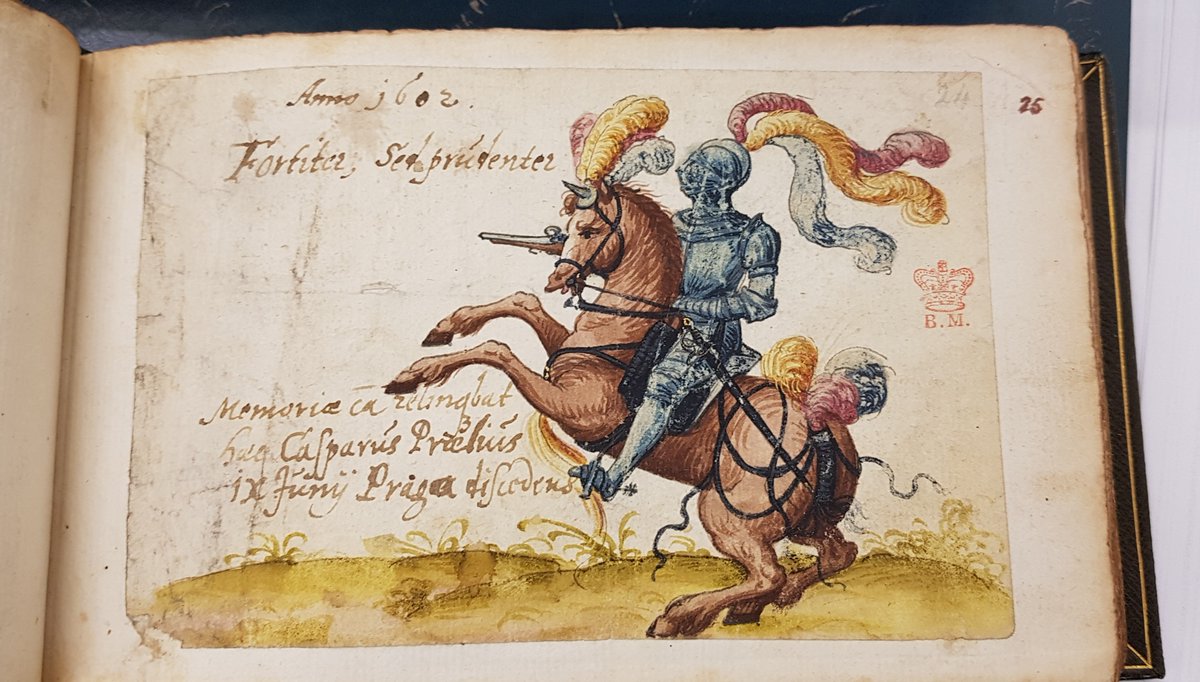 Anno 1602.
24
25
Fortiter, Sed prudenter
B. M.
Memoriæ cā relinqbat
hæc Casparus Prælius
IX Junij Praga discedens